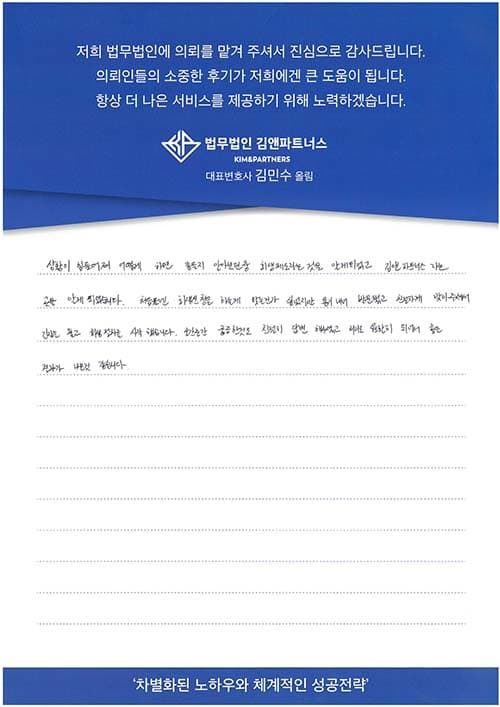 저희 법무법인에 의뢰를 맡겨 주셔서 진심으로 감사드립니다.
의뢰인들의 소중한 후기가 저희에겐 큰 도움이 됩니다.
항상 더 나은 서비스를 제공하기 위해 노력하겠습니다.
법무법인 김앤파트너스
KIM&PARTNERS
대표변호사 김민수 올림
상황이 힘들어져 어떻게 하면 좋을지 알아보던중 회생제도라는 것을 알게되었고 김앤파트너스 라는
곳을 알게 되었습니다. 처음보던 하는게 맞는건가 싶었지만 용기 내어 방문했고 친절하게 맞이해주셔서
믿고 회생절차를 시작 했습니다. 궁금한것도 친절히 답변 해주셨고 좋은
결과가 나온것 같습니다.
'차별화된 노하우와 체계적인 성공전략'